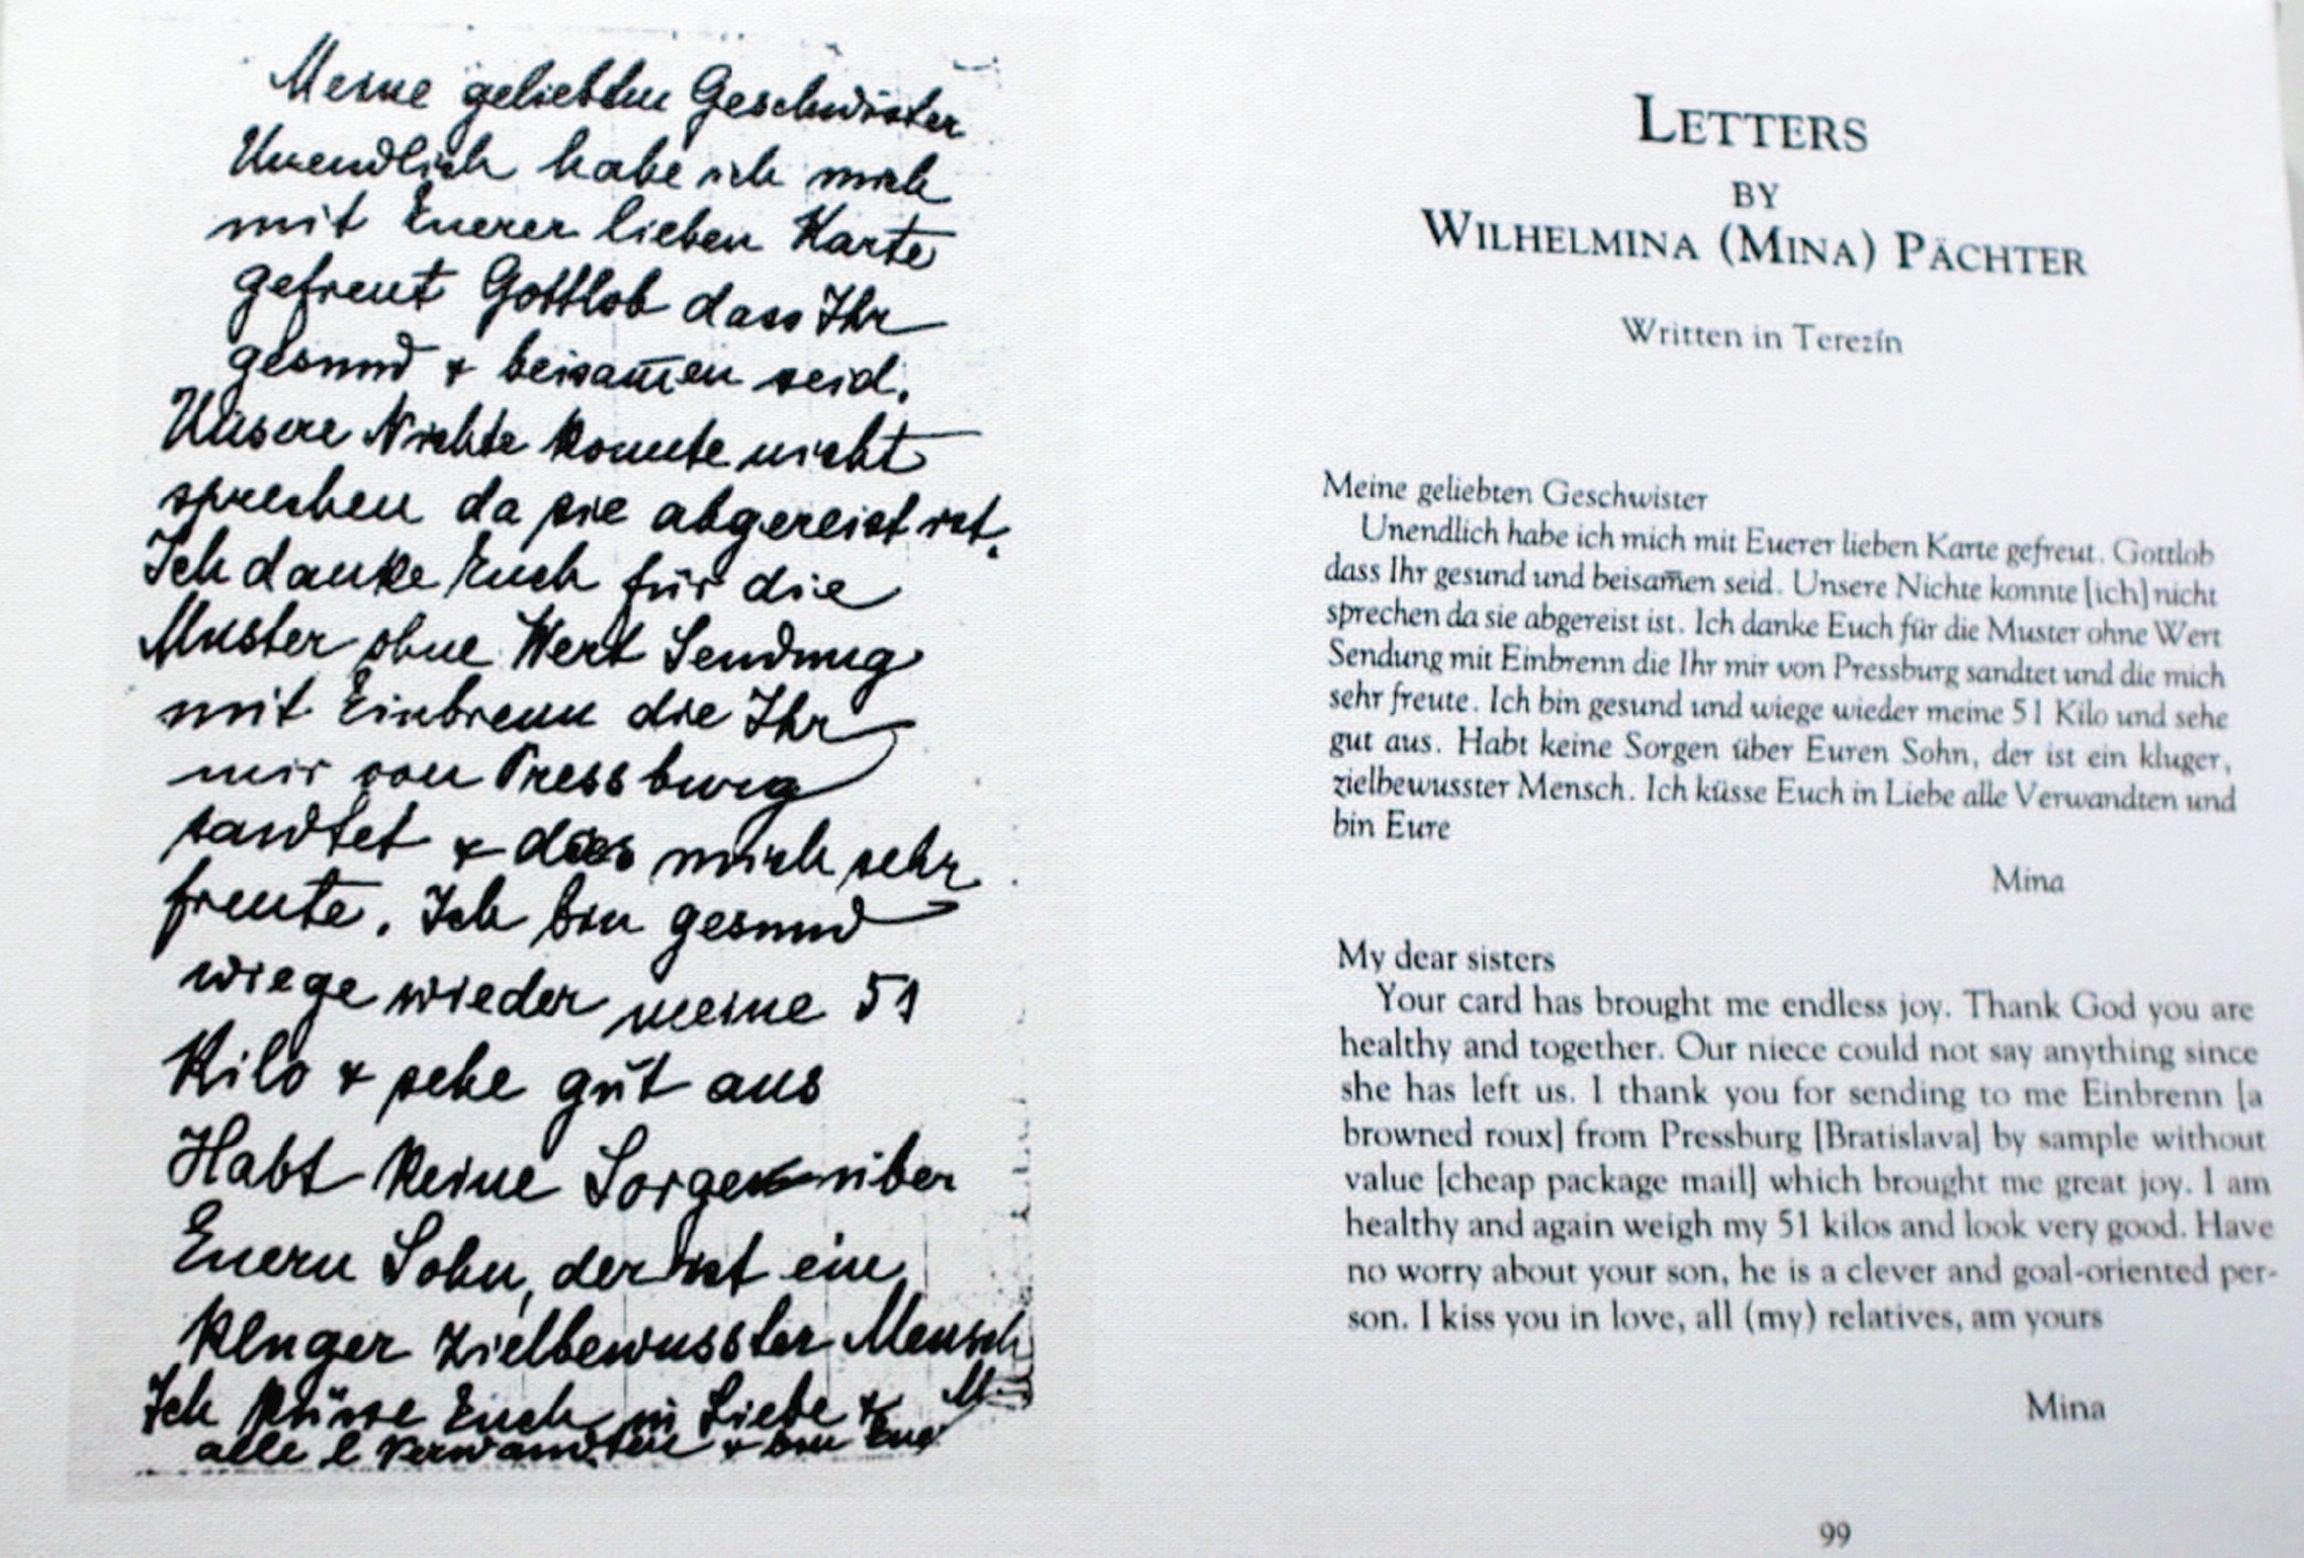 Meine geliebten Geschwister
Unendlich habe ich mich
mit Euerer lieben Karte
gefreut Gottlob dass Ihr
gesund & beisam̅en seid.
Unsere Nichte konnte nicht
sprechen da sie abgereist ist.
Ich danke Euch für die
Muster ohne Wert Sendung
mit Einbrenn die Ihr
mir von Pressburg
sandtet & dies mich sehr
freute. Ich bin gesund
wiege wieder meine 51
Kilo & sehe gut aus
Habt keine Sorgen über
Euern Sohn, der ist ein
kluger zielbewusster Mensch
Ich küsse Euch in Liebe &
alle l Verwandten & bin Eure
M
LETTERS
BY
WILHELMINA (MINA) PÄCHTER
Written in Terezín
Meine geliebten Geschwister
Unendlich habe ich mich mit Euerer lieben Karte gefreut. Gottlob
dass Ihr gesund und beisam̅en seid. Unsere Nichte konnte [ich] nicht
sprechen da sie abgereist ist. Ich danke Euch für die Muster ohne Wert
Sendung mit Einbrenn die Ihr mir von Pressburg sandtet und die mich
sehr freute. Ich bin gesund und wiege wieder meine 51 Kilo und sehe
gut aus. Habt keine Sorgen über Euren Sohn, der ist ein kluger,
zielbewusster Mensch. Ich küsse Euch in Liebe alle Verwandten und
bin Eure
Mina
My dear sisters
Your card has brought me endless joy. Thank God you are
healthy and together. Our niece could not say anything since
she has left us. I thank you for sending to me Einbrenn [a
browned roux] from Pressburg [Bratislava] by sample without
value [cheap package mail] which brought me great joy. I am
healthy and again weigh my 51 kilos and look very good. Have
no worry about your son, he is a clever and goal-oriented per-
son. I kiss you in love, all (my) relatives, am yours
Mina
99